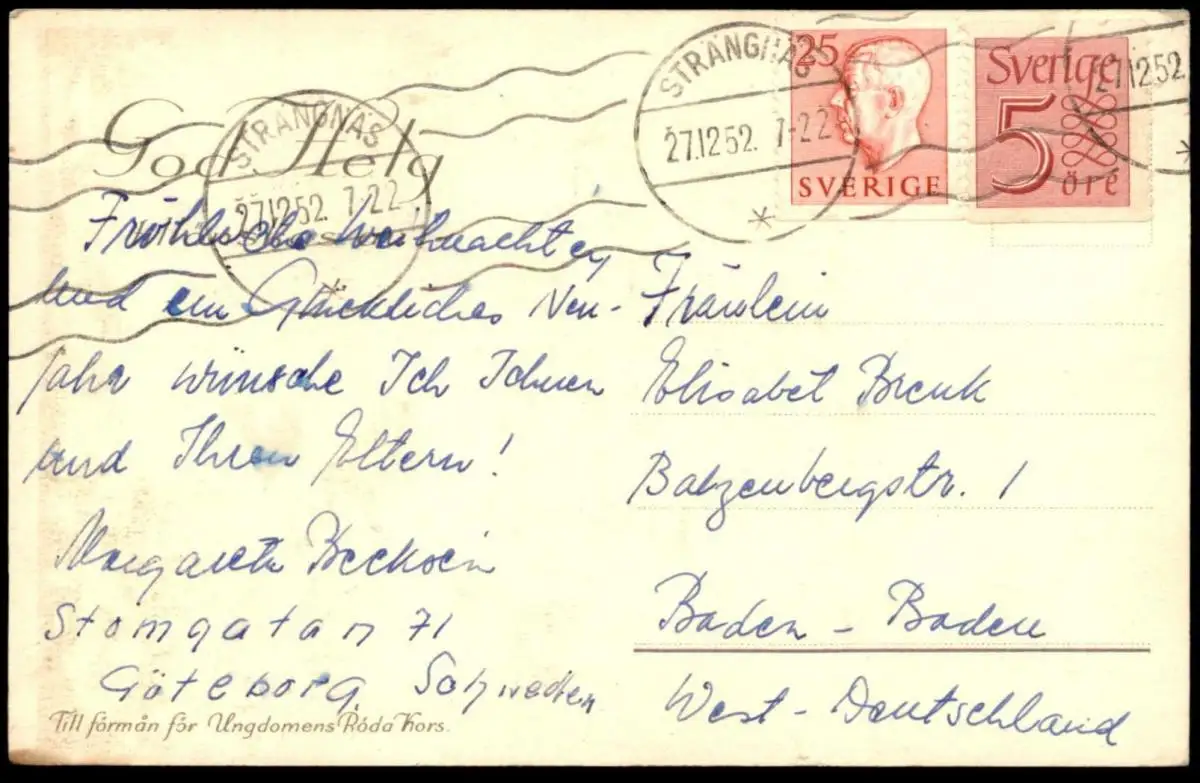 God Helg
STRÄNGNÄS
27.12.52. 7-22
STRÄNGNÄS
27.12.52. 7-22
25
SVERIGE
Sverige
5
öre
27.12.52
Fröhliche Weihnachten
und ein Glückliches Neu-
jahr wünsche Ich Ihnen
und Ihren Eltern!
Margareta
Stomgatan 71
Göteborg Schweden
Till förmån för Ungdomens Röda Kors.
Fräulein
Elisabet Brenk
Balzenbergstr. 1
Baden - Baden
West - Deutschland